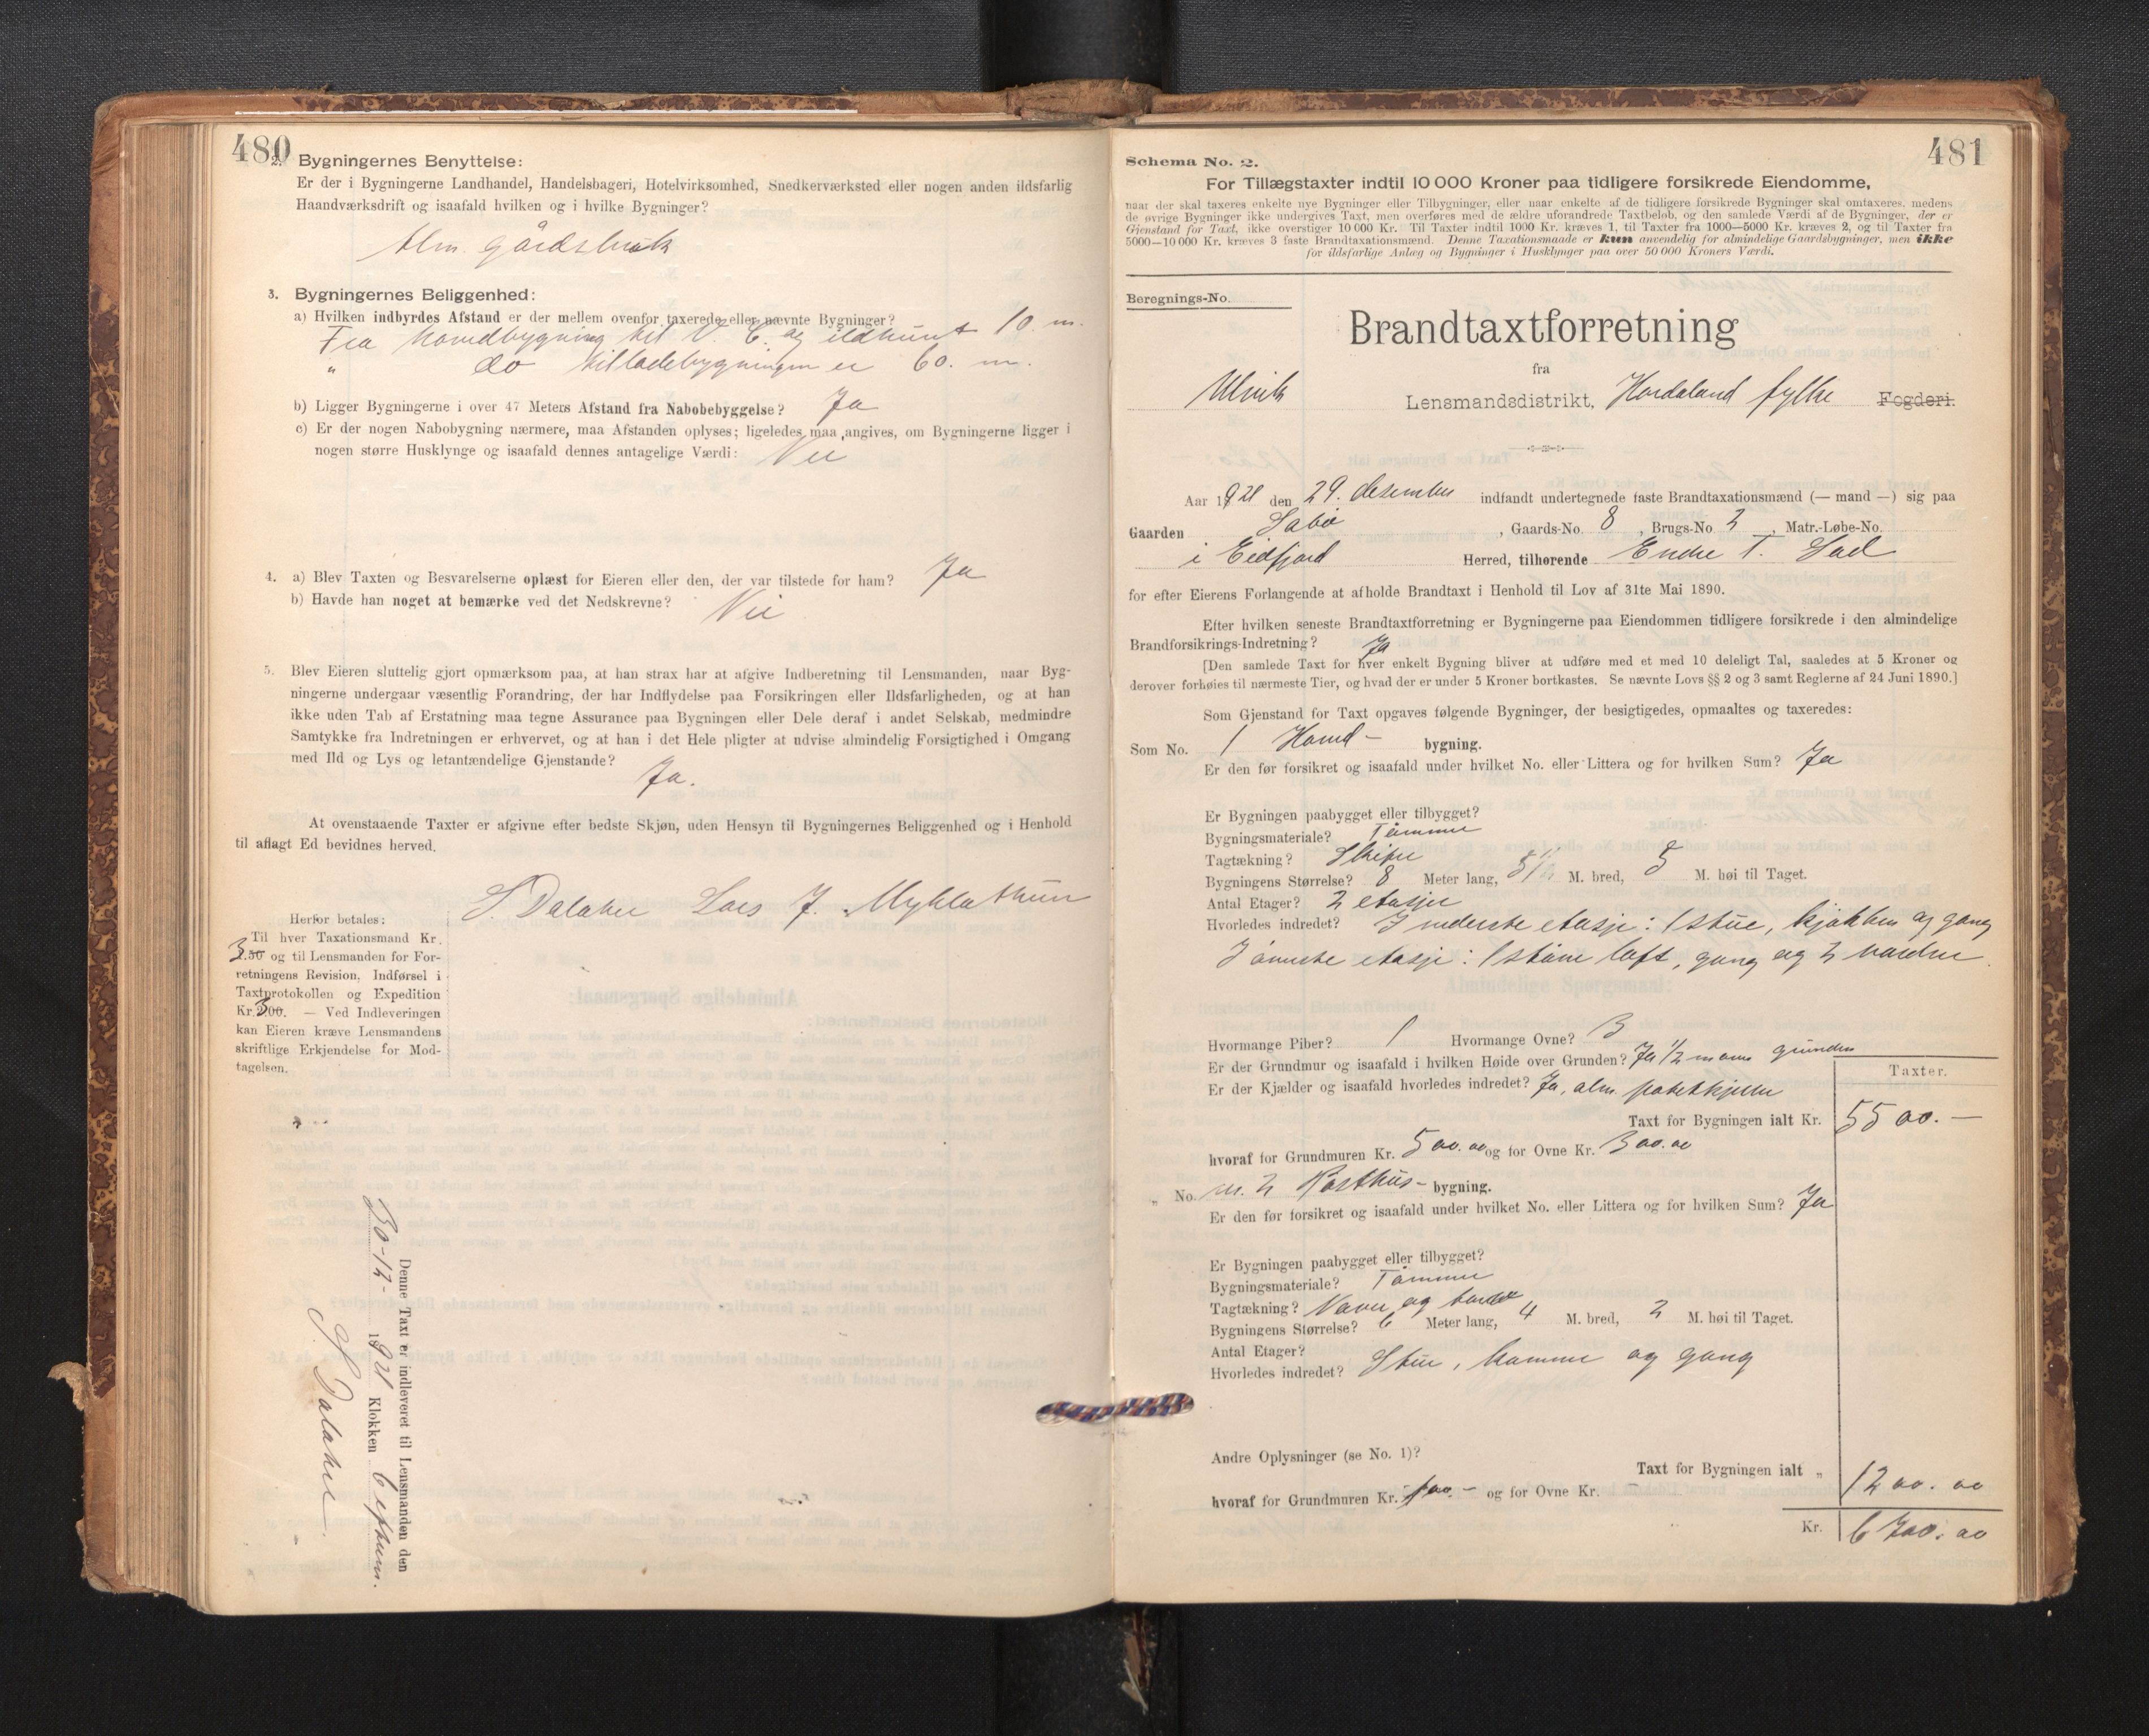 480
2. Bygningernes Benyttelse:
Er der i Bygningerne Landhandel, Handelsbageri, Hotelvirksomhed, Snedkerværksted eller nogen anden ildsfarlig
Haandværksdrift og isaafald hvilken og i hvilke Bygninger?
Alm. gårdsbruk
3. Bygningernes Beliggenhed:
a) Hvilken indbyrdes Afstand er der mellem ovenfor taxerede eller nævnte Bygninger?
Fra hovedbygning til V. C. og ildhuset 10. m.
" do til ladebygningen er 60. m.
b) Ligger Bygningerne i over 47 Meters Afstand fra Nabobebyggelse? Ja
c) Er der nogen Nabobygning nærmere, maa Afstanden oplyses; ligeledes maa angives, om Bygningerne ligger i
nogen større Husklynge og isaafald dennes antagelige Værdi: Nei
4. a) Blev Taxten og Besvarelserne oplæst for Eieren eller den, der var tilstede for ham? Ja
b) Havde han noget at bemærke ved det Nedskrevne? Nei
5. Blev Eieren sluttelig gjort opmærksom paa, at han strax har at afgive Indberetning til Lensmanden, naar Byg-
ningerne undergaar væsentlig Forandring, der har Indflydelse paa Forsikringen eller Ildsfarligheden, og at han
ikke uden Tab af Erstatning maa tegne Assurance paa Bygningen eller Dele deraf i andet Selskab, medmindre
Samtykke fra Indretningen er erhvervet, og at han i det Hele pligter at udvise almindelig Forsigtighed i Omgang
med Ild og Lys og letantændelige Gjenstande?
Ja.
At ovenstaaende Taxter er afgivne efter bedste Skjøn, uden Hensyn til Bygningernes Beliggenhed og i Henhold
til aflagt Ed bevidnes herved.
S. Dalaker Lars J. Myklathun
Herfor betales:
Til hver Taxationsmand Kr.
3.50 og til Lensmanden for For-
retningens Revision, Indførsel i
Taxtprotokollen og Expedition
Kr. 3.00. — Ved Indleveringen
kan Eieren kræve Lensmandens
skriftlige Erkjendelse for Mod-
tagelsen.
Denne Taxt er indleveret til Lensmanden den
30-12- 1921 Klokken 6 efterm.
S Dalaker
481
Schema No. 2.
For Tillægstaxter indtil 10 000 Kroner paa tidligere forsikrede Eiendomme,
naar der skal taxeres enkelte nye Bygninger eller Tilbygninger, eller naar enkelte af de tidligere forsikrede Bygninger skal omtaxeres, medens
de øvrige Bygninger ikke undergives Taxt, men overføres med de ældre uforandrede Taxtbeløb, og den samlede Værdi af de Bygninger, der er
Gjenstand for Taxt, ikke overstiger 10 000 Kr. Til Taxter indtil 1000 Kr. kræves 1, til Taxter fra 1000—5000 Kr. kræves 2, og til Taxter fra
5000—10 000 Kr. kræves 3 faste Brandtaxationsmænd. Denne Taxationsmaade er kun anvendelig for almindelige Gaardsbygninger, men ikke
for ildsfarlige Anlæg og Bygninger i Husklynger paa over 50 000 Kroners Værdi.
Beregnings-No.
Brandtaxtforretning
fra
Ulvik Lensmandsdistrikt, Hordaland fylke Fogderi.
Aar 1921 den 29. desember indfandt undertegnede faste Brandtaxationsmænd (— mand —) sig paa
Gaarden Sabø, Gaards-No. 8, Brugs-No 2, Matr.-Løbe-No.
i Eidfjord Herred, tilhørende Endre T. Sad
for efter Eierens Forlangende at afholde Brandtaxt i Henhold til Lov af 31te Mai 1890.
Efter hvilken seneste Brandtaxtforretning er Bygningerne paa Eiendommen tidligere forsikrede i den almindelige
Brandforsikrings-Indretning? Ja
[Den samlede Taxt for hver enkelt Bygning bliver at udføre med et med 10 deleligt Tal, saaledes at 5 Kroner og
derover forhøies til nærmeste Tier, og hvad der er under 5 Kroner bortkastes. Se nævnte Lovs §§ 2 og 3 samt Reglerne af 24 Juni 1890.]
Som Gjenstand for Taxt opgaves følgende Bygninger, der besigtigedes, opmaaltes og taxeredes:
Som No. 1 Hovid- bygning.
Er den før forsikret og isaafald under hvilket No. eller Littera og for hvilken Sum? Ja
Er Bygningen paabygget eller tilbygget?
Bygningsmateriale? Tømmer
Tagtækning? Skifer
Bygningens Størrelse? 8 Meter lang, 5 1/2 M. bred, 5 M. høi til Taget.
Antal Etager? 2 etasjer
Hvorledes indredet? I nederste etasje: 1 stue, kjøkken og gang
I øverste etasje: 1 større loft, gang og 2 værelser.
Hvormange Piber? 1 Hvormange Ovne? 3
Er der Grundmur og isaafald i hvilken Høide over Grunden? Ja 1/2 m over grunden
Er der Kjælder og isaafald hvorledes indredet? Ja, alm. potetkjeller
Taxter.
Taxt for Bygningen ialt Kr. 5500.—
hvoraf for Grundmuren Kr. 500.00 og for Ovne Kr. 300.00
" No. 2 bygning.
Er den før forsikret og isaafald under hvilket No. eller Littera og for hvilken Sum? Ja
Er Bygningen paabygget eller tilbygget?
Bygningsmateriale? Tømmer
Tagtækning? Næver og
Bygningens Størrelse? 6 Meter lang, 4 M. bred, 2 M. høi til Taget.
Antal Etager?
Hvorledes indredet? Stue, kammer og gang
Andre Oplysninger (se No. 1)?
Taxt for Bygningen ialt " 1200.00
hvoraf for Grundmuren Kr. 100.- og for Ovne Kr. —
Kr. 6700.00